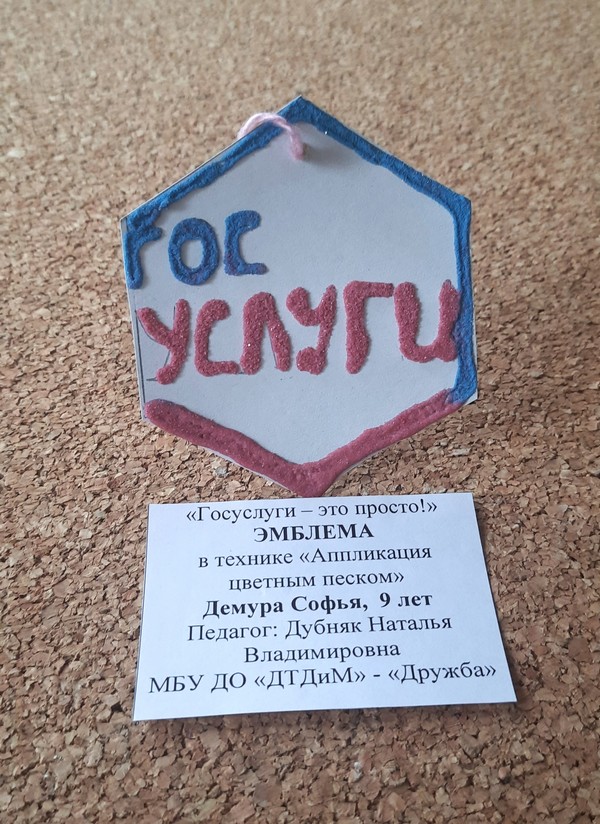 гос
услуги
«Госуслуги – это просто!»
ЭМБЛЕМА
в технике «Аппликация
цветным песком»
Демура Софья, 9 лет
Педагог: Дубняк Наталья
Владимировна
МБУ ДО «ДТДиМ» - «Дружба»